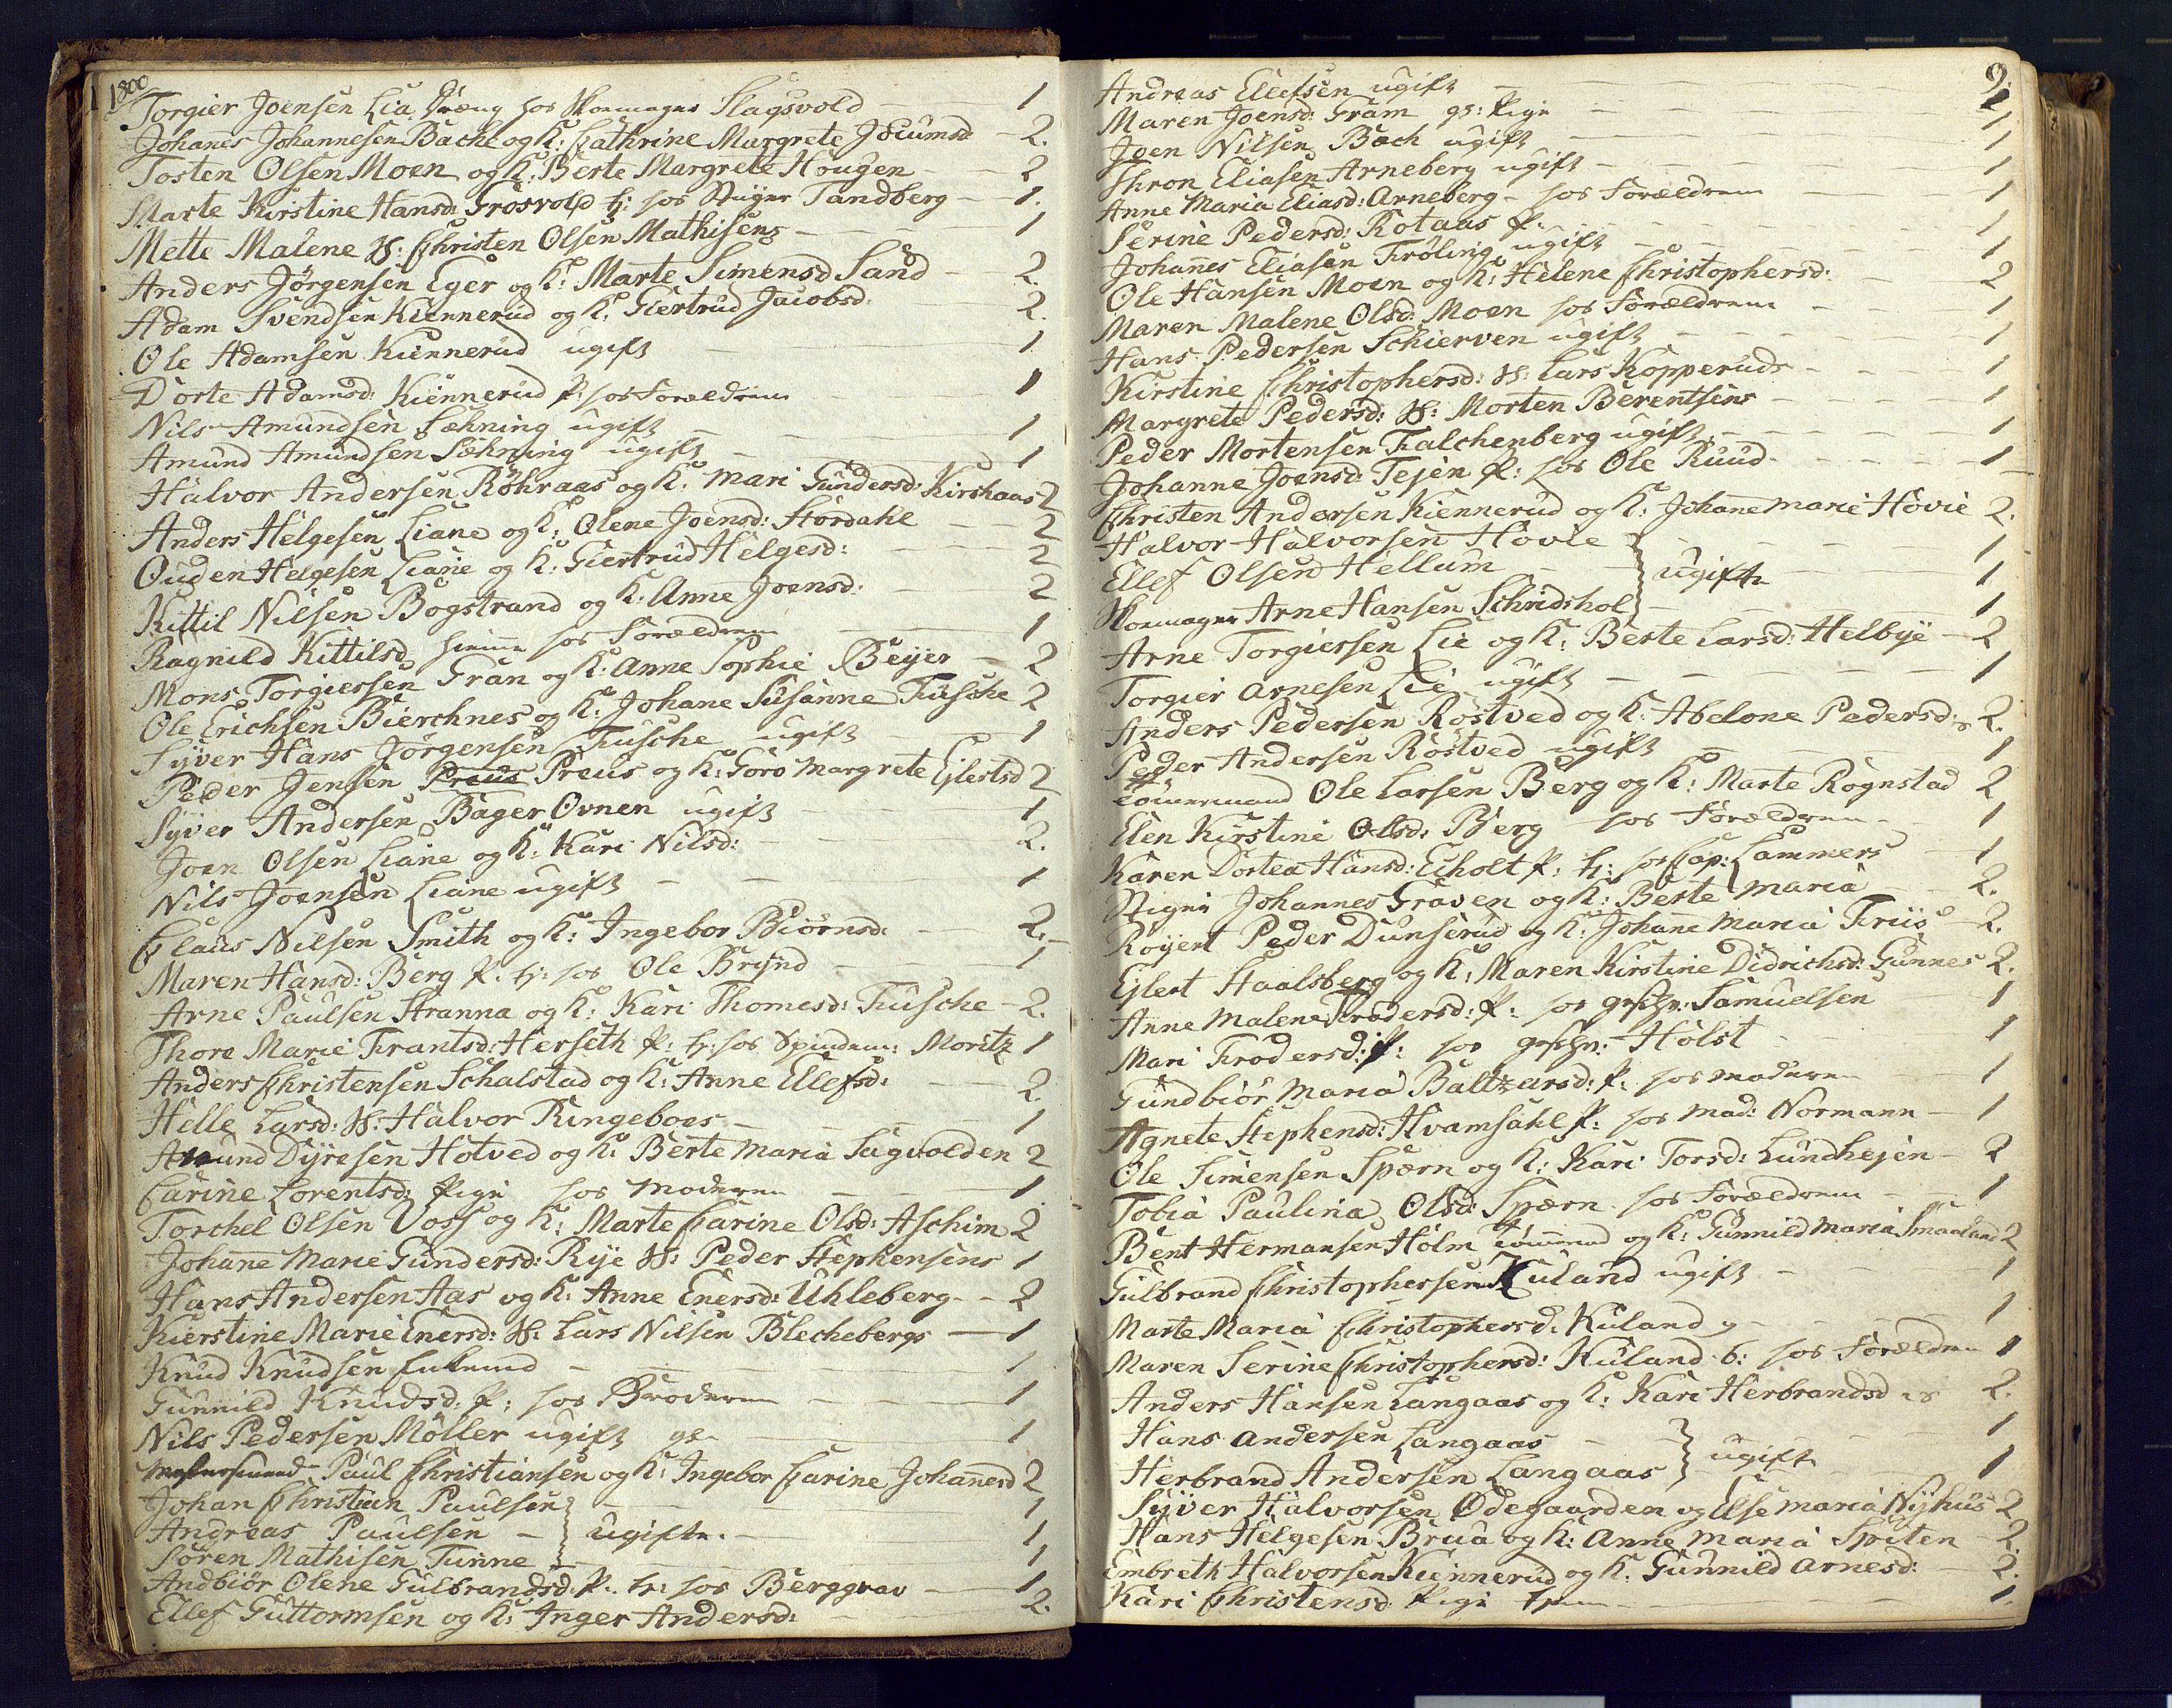 1800
Torgier Joensen Lia, Dræng hos Skomager Slagsvold 1
Johanes Johannesen Bache og K: Cathrine Margrete Jocumsd 2.
Tosten Olsen Moen og K: Berte Margrete Hougen 2
Marte Kirstine Hansd: Grosvold tj: hos Stiger Tandberg 1.
Mette Malene H: Christen Olsen Mathisens 1
Anders Jörgensen Eger og K: Marte Simensd Sand 2.
Adam Svendsen Kiennerud og K: Giertrud Jacobsd: 2.
Ole Adamsen Kiennerud ugift 1
Dorte Adamsd: Kiennerud p: hos Foreldrene 1
Nils Amundsen Sæhning ugift 1
Amund Amundsen Sæhning ugift 1
Halvor Andersen Röhraas og K: Mari Gundersd: Kirshaas 2
Anders Helgesen Liane og K: Olene Joensd: Stordahl 2
Ouden Helgesen Liane og K: Giertrud Helgesd: 2
Kittil Nilsen Bogstrand og K: Anne Joensd: 2
Ragnild Kittilsd hiemme hos Forældrene 1
Mons Torgiersen Gran og K: Anne Sophie Beyer 2
Ole Erichsen Bierchnes og K: Johane Susanne Fusche 2
Syver Hans Jörgensen Fusche ugift 1
Peder Jensen Preus Preus og K: Goro Margrete Ejlertsd 2
Syver Andersen Bager Ovnen ugift 1
Joen Olsen Liane og K: Kari Nilsd: 2.
Nils Joensen Liane ugift 1
Claus Nilsen Smith og K: Ingebor Biörnsd: 2.
Maren Hansd: Berg p: tj: hos Ole Brynd 1
Arne Paulsen Stranna og K: Kari Thomesd: Fusche 2.
Thore Marie Frantsd: Herseth p: tj: hos Moritz 1
Anders Christensen Schalstad og K: Anne Ellefsd: 2.
Helle Larsd: H: Halvor Ringeboes 1
Amund Dyresen Hotved og K: Berte Maria Sagvolden 2
Carine Lorentsd: Pige hos Moderen 1
Torchel Olsen Voss og K: Marte Carine Olsd: Aschim 2
Johane Marie Gundersd: Rye H: Peder Stephensens 1
Hans Andersen Aas og K: Anne Enersd: Uhleberg 2
Kierstine Marie Enersd: H: Lars Nilsen Blechebergs 1
Knud Knudsen Enkemd 1
Gunnild Knudsd: p: hos Broderen 1
Nils Pedersen Möller ugift 1
Paul Christiansen og K: Ingebor Carine Johanesd 2
Johan Christian Paulsen 1
Andreas Paulsen ugifte. 1
Sören Mathisen Tunne 1
Andbiör Olene Gulbrandsd: p: tj: hos Berggrav 1
Ellef Guttormsen og K: Inger Andersd: 2.
9.
Andreas Ellefsen ugift 1
Maren Joensd: Gram gs: Pige 1
Joen Nilsen Bach ugift 1
Thron Eliasen Arneberg ugift 1
Anne Maria Eliasd: Arneberg hos Forældrene 1
Serine Pedersd: Rotaas p: 1
Johanes Eliasen Fröling ugift 1
Ole Hansen Moen og K: Helene Christophersd: 2
Maren Malene Olsd: Moen hos Forældrene 1
Hans Pedersen Schierven ugift 1
Kirstine Christophersd: H: Lars Kopperuds 1
Margrete Pedersd: H: Morten Berentsens 1
Peder Mortensen Falchenberg ugift 1
Johanne Joensd: Tejen p: hos Ole Ruud 1
Christen Andersen Kiennerud og K: Johane Marie Hovie 2.
Halvor Halvorsen Hovie 1
Ellef Olsen Hellum ugifte 1
Skomager Arne Hansen Schridshol 1
Arne Torgiersen Lie og K: Berte Larsd: Helbye 2
Torgier Arnesen Lie ugift 1
Anders Pedersen Rostved og K: Abelone Pedersd: 2.
Peder Andersen Rostved ugift 1
Tömmermand Ole Larsen Berg og K: Marte Rognstad 2
Elen Kirstine Olsd: Berg hos Forældrene 1
Karen Dortea Hansd: Echolt p: tj: hos Cap: Lammers 1
Stiger Johannes Graven og K: Berte Maria 2.
Röyert Peder Dunserud og K: Johane Maria Friis 2.
Ejlert Staalsberg og K: Maren Kirstine Didrichsd: Gunnes 2.
Anne Malene Frodersd: p: hos Samuelsen 1
Mari Frodersd: p: hos Holst 1
Gundbiör Maria Baltzarsd: p: hos Moderen 1
Agnete Stephensd: Hvamsahl p: hos Mad: Normann 1
Ole Simensen Spærn og K: Kari Torsd: Lundhejen 2
Tobia Paulina Olsd: Spærn hos Forældrene 1
Bent Hermansen Holm og K: Gunnild Maria Smaaland 2
Gulbrand Christophersen Kuland ugift 1
Marte Maria Christophersd: Kuland 1
Maren Serine Christophersd: Kuland b: hos Forældrene 1
Anders Hansen Langaas og K: Kari Herbrandsd 2.
Hans Andersen Langaas 1
Herbrand Andersen Langaas ugift 1
Syver Halvorsen Ödegaarden og Else Maria Nyhus 2
Hans Helgesen Brua og K: Anne Maria Spiten 2.
Embreth Halvorsen Kiennerud og K: Gunnild Arnesd: 2.
Kari Christensd Pige 1.